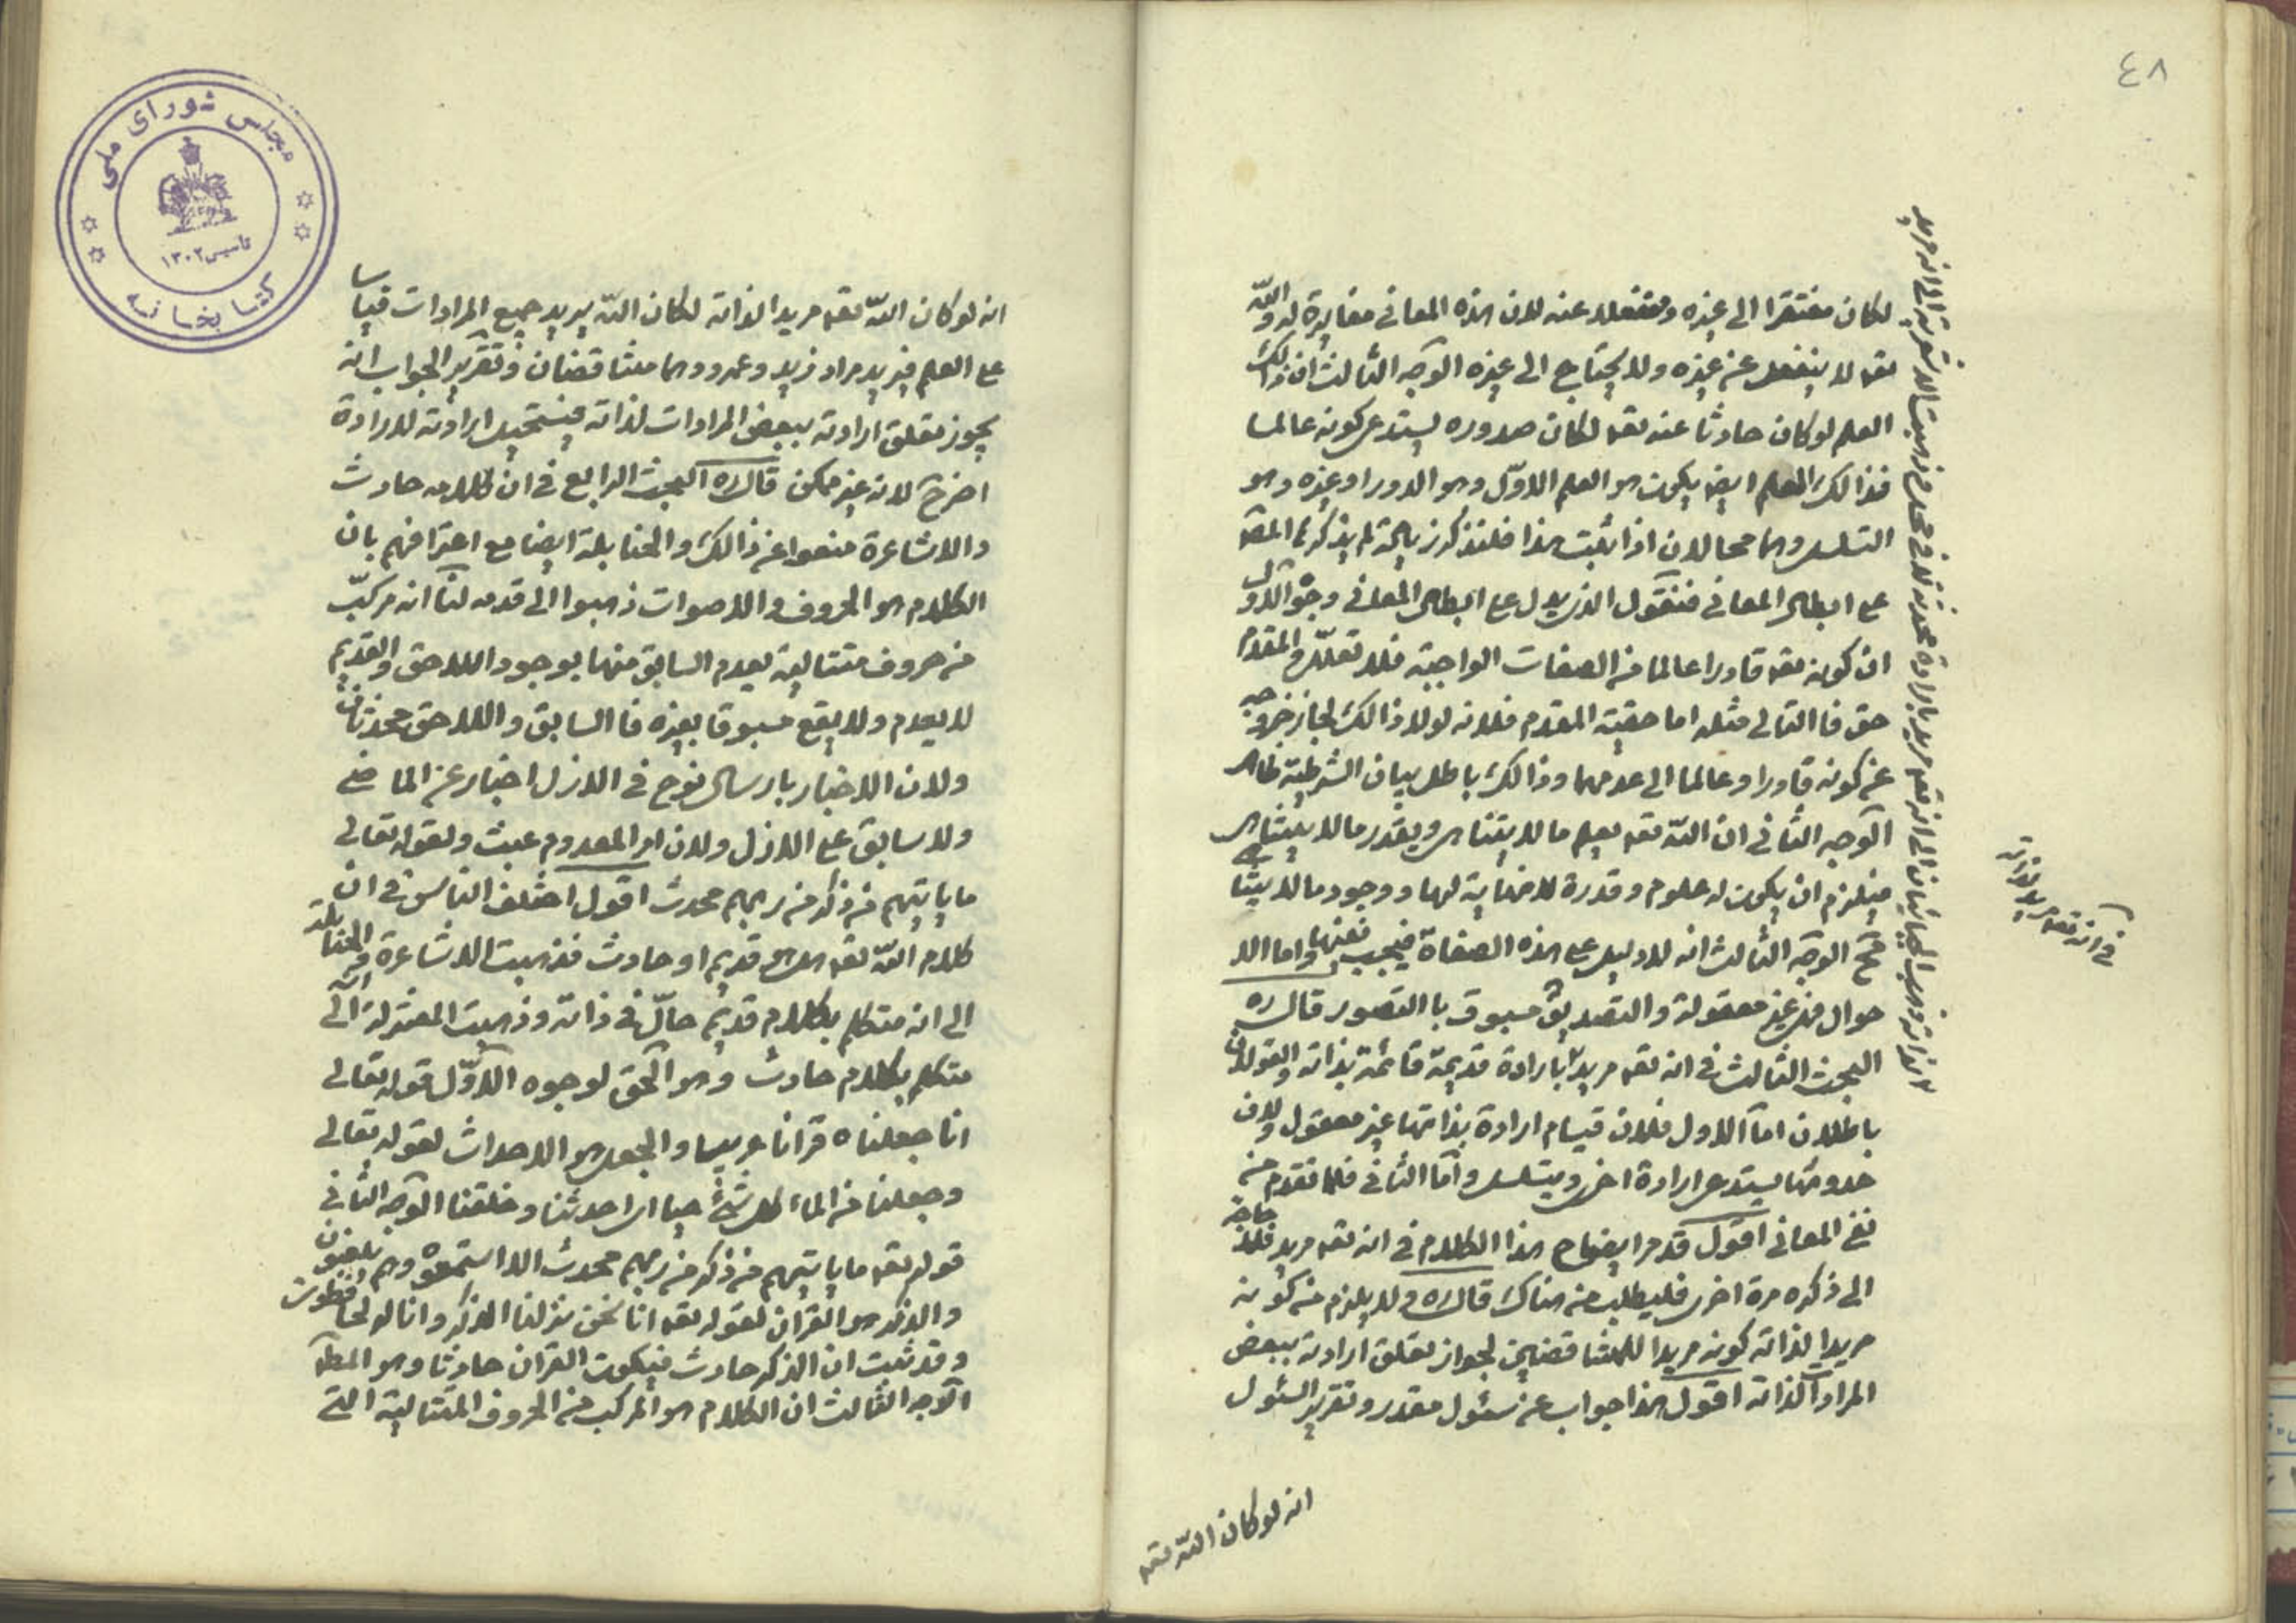 ٤٨
لكان مفتقرا الى غيره ومنفعلا عنه لان هذه المعانى مغايرة له والله
تعه لا ينفعل عن غيره ولا يحتاج الى غيره الوجه الثالث ان ذالك
العلم لو كان حادثا عنه تعه لكان صدوره يستدعى كونه عالما
فذالك العلم ايضا يكون هو العلم الاول وهو الدور او غيره وهو
التسلسل وهما محالان اذا ثبت هذا فلنذكر زيادة لم يذكرها المصه
على ابطال المعانى فنقول الذى يدل على ابطال المعانى وجوه الاول
ان كونه تعه قادرا عالما من الصفات الواجبة فلا تعلل والمقدم
حق فا التالى مثله اما حقية المقدم فلانه لولا ذالك لجاز خروجه
عن كونه قادرا وعالما الى عدمهما وذالك باطل بيان الشرطية ظاهر
الوجه الثانى ان الله تعه يعلم ما لا يتناهى ويقدر ما لا يتناهى
فيلزم ان يكون له علوم وقدرة لا نهاية لها ووجود ما لا يتناهى
مح الوجه الثالث انه لا دليل على هذه الصفاة فيجب نفيها واما الا
حوال فغير معقولة والتصديق مسبوق با التصور قال ره
البحث الثالث فى انه تعه مريد بارادة قديمة قائمة بذاته والقولان
باطلان اما الاول فلان قيام ارادة بذاتها غير معقول ولان
حدوثها يستدعى ارادة اخرى ويتسلسل واما الثانى فلما تقدم من
نفى المعانى اقول قد مر ايضاح هذا الكلام فى انه تعه مريد فلا حاجة
الى ذكره مرة اخرى فليطلب من هناك قال ره ولا يلزم من كونه
مريدا لذاته كونه مريدا للمتناقضين لجواز تعلق ارادته ببعض
المرادات لذاته اقول هذا جواب عن سئول مقدر وتقرير السئول
انه لو كان الله تعه
فى انه تعه مريد لذاته
انه لو كان الله تعه مريدا لذاته لكان الله يريد جميع المرادات قياسا
على العلم فيريد مراد زيد وعمرو وهما متناقضان وتقرير الجواب انه
يجوز تعلق ارادته ببعض المرادات لذاته فيستحيل ارادته للارادة
اخرى لانه غير ممكن قال ره البحث الرابع فى ان كلامه حادث
والاشاعرة منعوا عن ذالك والحنابلة ايضا مع اعترافهم بان
الكلام هو الحروف والاصوات ذهبوا الى قدمه لنا انه مركب
من حروف متتالية يعدم السابق منها بوجود اللاحق والقديم
لا يعدم ولا يقع مسبوقا بغيره فا السابق واللاحق محدثان
ولان الاخبار بارسال نوح فى الازل اخبار عن الماضى
ولا سابق على الازل ولان امر المعدوم عبث ولقوله تعالى
ما ياتيهم من ذكر من ربهم محدث اقول اختلف الناس فى ان
كلام الله تعه هل هو قديم او حادث فذهبت الاشاعرة والحنابلة
الى انه متكلم بكلام قديم حال فى ذاته وذهبت المعتزلة الى انه
متكلم بكلام حادث وهو الحق لوجوه الاول قوله تعالى
انا جعلناه قرانا عربيا والجعل هو الاحداث لقوله تعالى
وجعلنا من الماء كل شئ حيا اى احدثنا وخلقنا الوجه الثانى
قوله تعه ما ياتيهم من ذكر من ربهم محدث الا استمعوه وهم يلعبون
والذكر هو القران لقوله تعه انا نحن نزلنا الذكر وانا له لحافظون
وقد ثبت ان الذكر حادث فيكون القران حادثا وهو المطه
الوجه الثالث ان الكلام هو المركب من الحروف المتتالية التى
مجلس شورای ملی
تاسیس ۱۳۰۲
کتابخانه